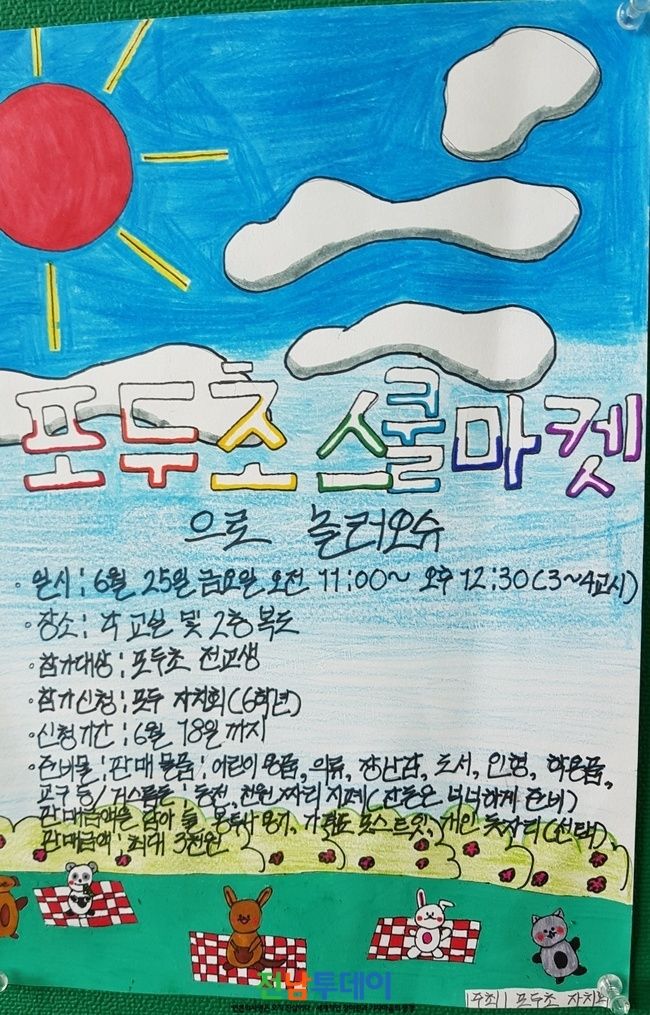 포두초 스쿨마켓
으로 놀러오슈
· 일시 : 6월 25일 금요일 오전 11:00~ 오후 12:30(3~4교시)
· 장소 : 각 교실 및 2층 복도
· 참가대상 : 포두초 전교생
· 참가신청 : 포두 자치회(6학년)
· 신청기간 : 6월 18일까지
· 준비물 : 판매 물품 : 어린이 용품, 의류, 장난감, 도서, 인형, 학용품,
교구 등/ 거스름돈 : 동전, 천원 짜리 지폐(잔돈은 넉넉하게 준비)
판매금액을 담아 놓을 봉투나 용기, 가격표 포스트잇, 개인 돗자리(선택)
판매금액 : 최대 3천원
전남투데이
주최 포두초 자치회